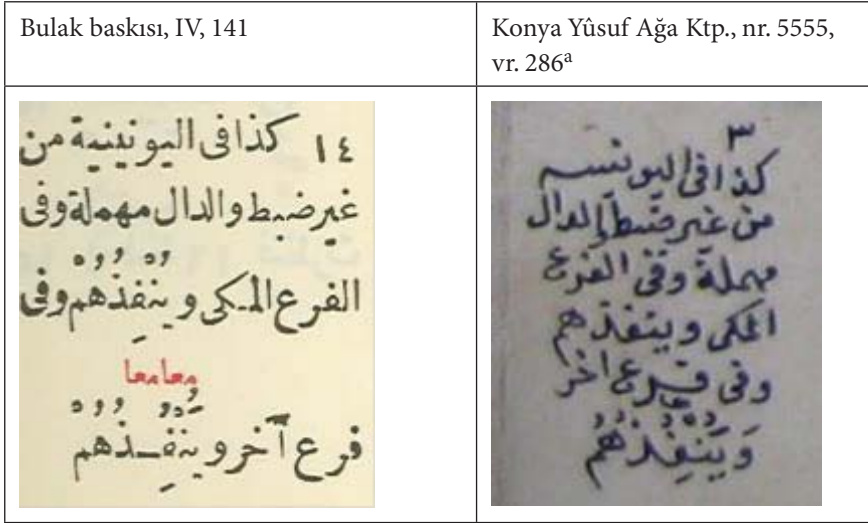 Bulak baskısı, IV, 141
Konya Yûsuf Ağa Ktp., nr. 5555,
vr. 286ᵃ
١٤ كذا فى اليونينية من
غير ضبط والدال مهملة وفى
الفرع المكى و يُنْفِذُهُمْ وفى
معا معا
فرع آخر و يُنْفِـذُهُمْ
٣
كذا فى اليونينيه
من غير ضبط والدال
مهملة وفى الفرع
المكى وينفذهم
وفى فرع اخر
وَيُنْفِذُهُمْ